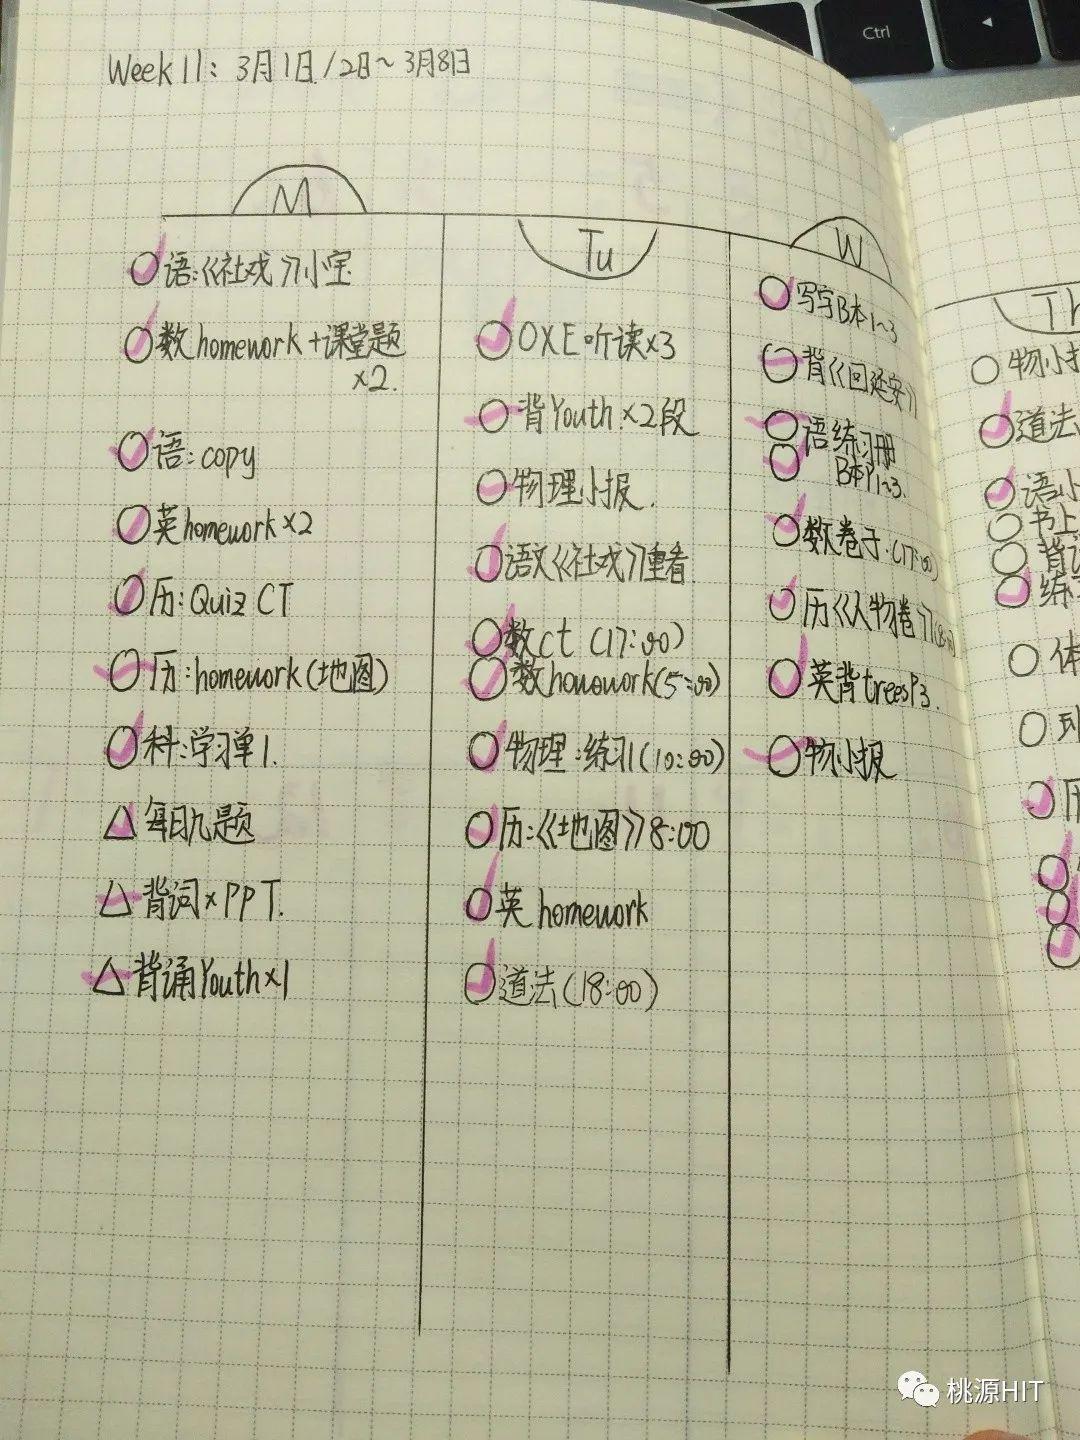 Ctrl
Week 11: 3月1日/2日~3月8日
M
语:《社戏》小宝
数homework+课堂题
×2.
语: copy
英homework×2
历: Quiz CT
历: homework(地图)
科:学习单1.
每日九题
背词×PPT.
背诵Youth×1
Tu
OXE听读×3
背Youth×2段
物理小报.
语文《社戏》重看
数ct (17:00)
数homowork(5:00)
物理:练习1(10:00)
历:《地图》8:00
英 homework
道法(18:00)
W
写字B本1~3
背《回延安》
语练习册
B本P1~3.
数卷子.(17:00)
历《人物卷》
英背treesP3.
物小报
Th
物小报
道法
语小
书上
背
练
体
历
桃源HIT